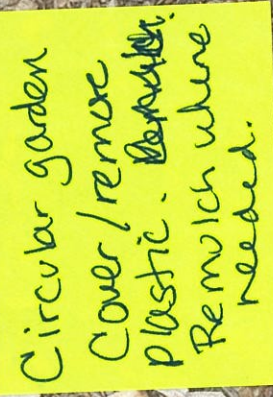 Circular garden
Cover/remove
plastic.
Remulch where
needed.